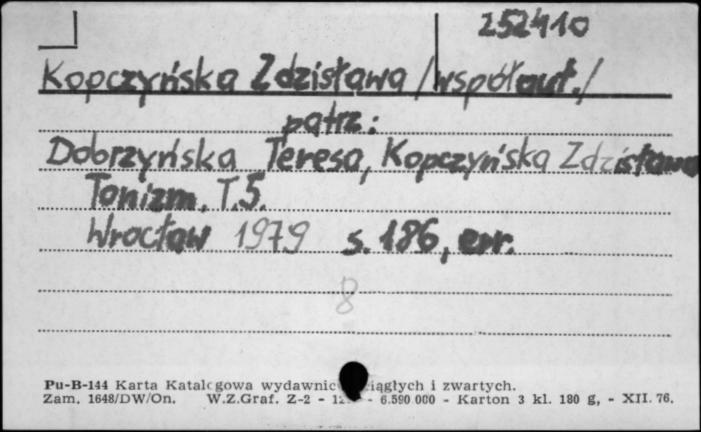 252410
Kopczyńska Zdzisława /współaut./
patrz:
Dobrzyńska Teresa, Kopczyńska Zdzisława
Tonizm. T.5.
Wrocław 1979 s. 186, err.
8
Pu-B-144 Karta Katalogowa wydawnic ciągłych i zwartych.
Zam. 1648/DW/On. W.Z.Graf. Z-2 - - 6.590 000 - Karton 3 kl. 180 g, - XII. 76.